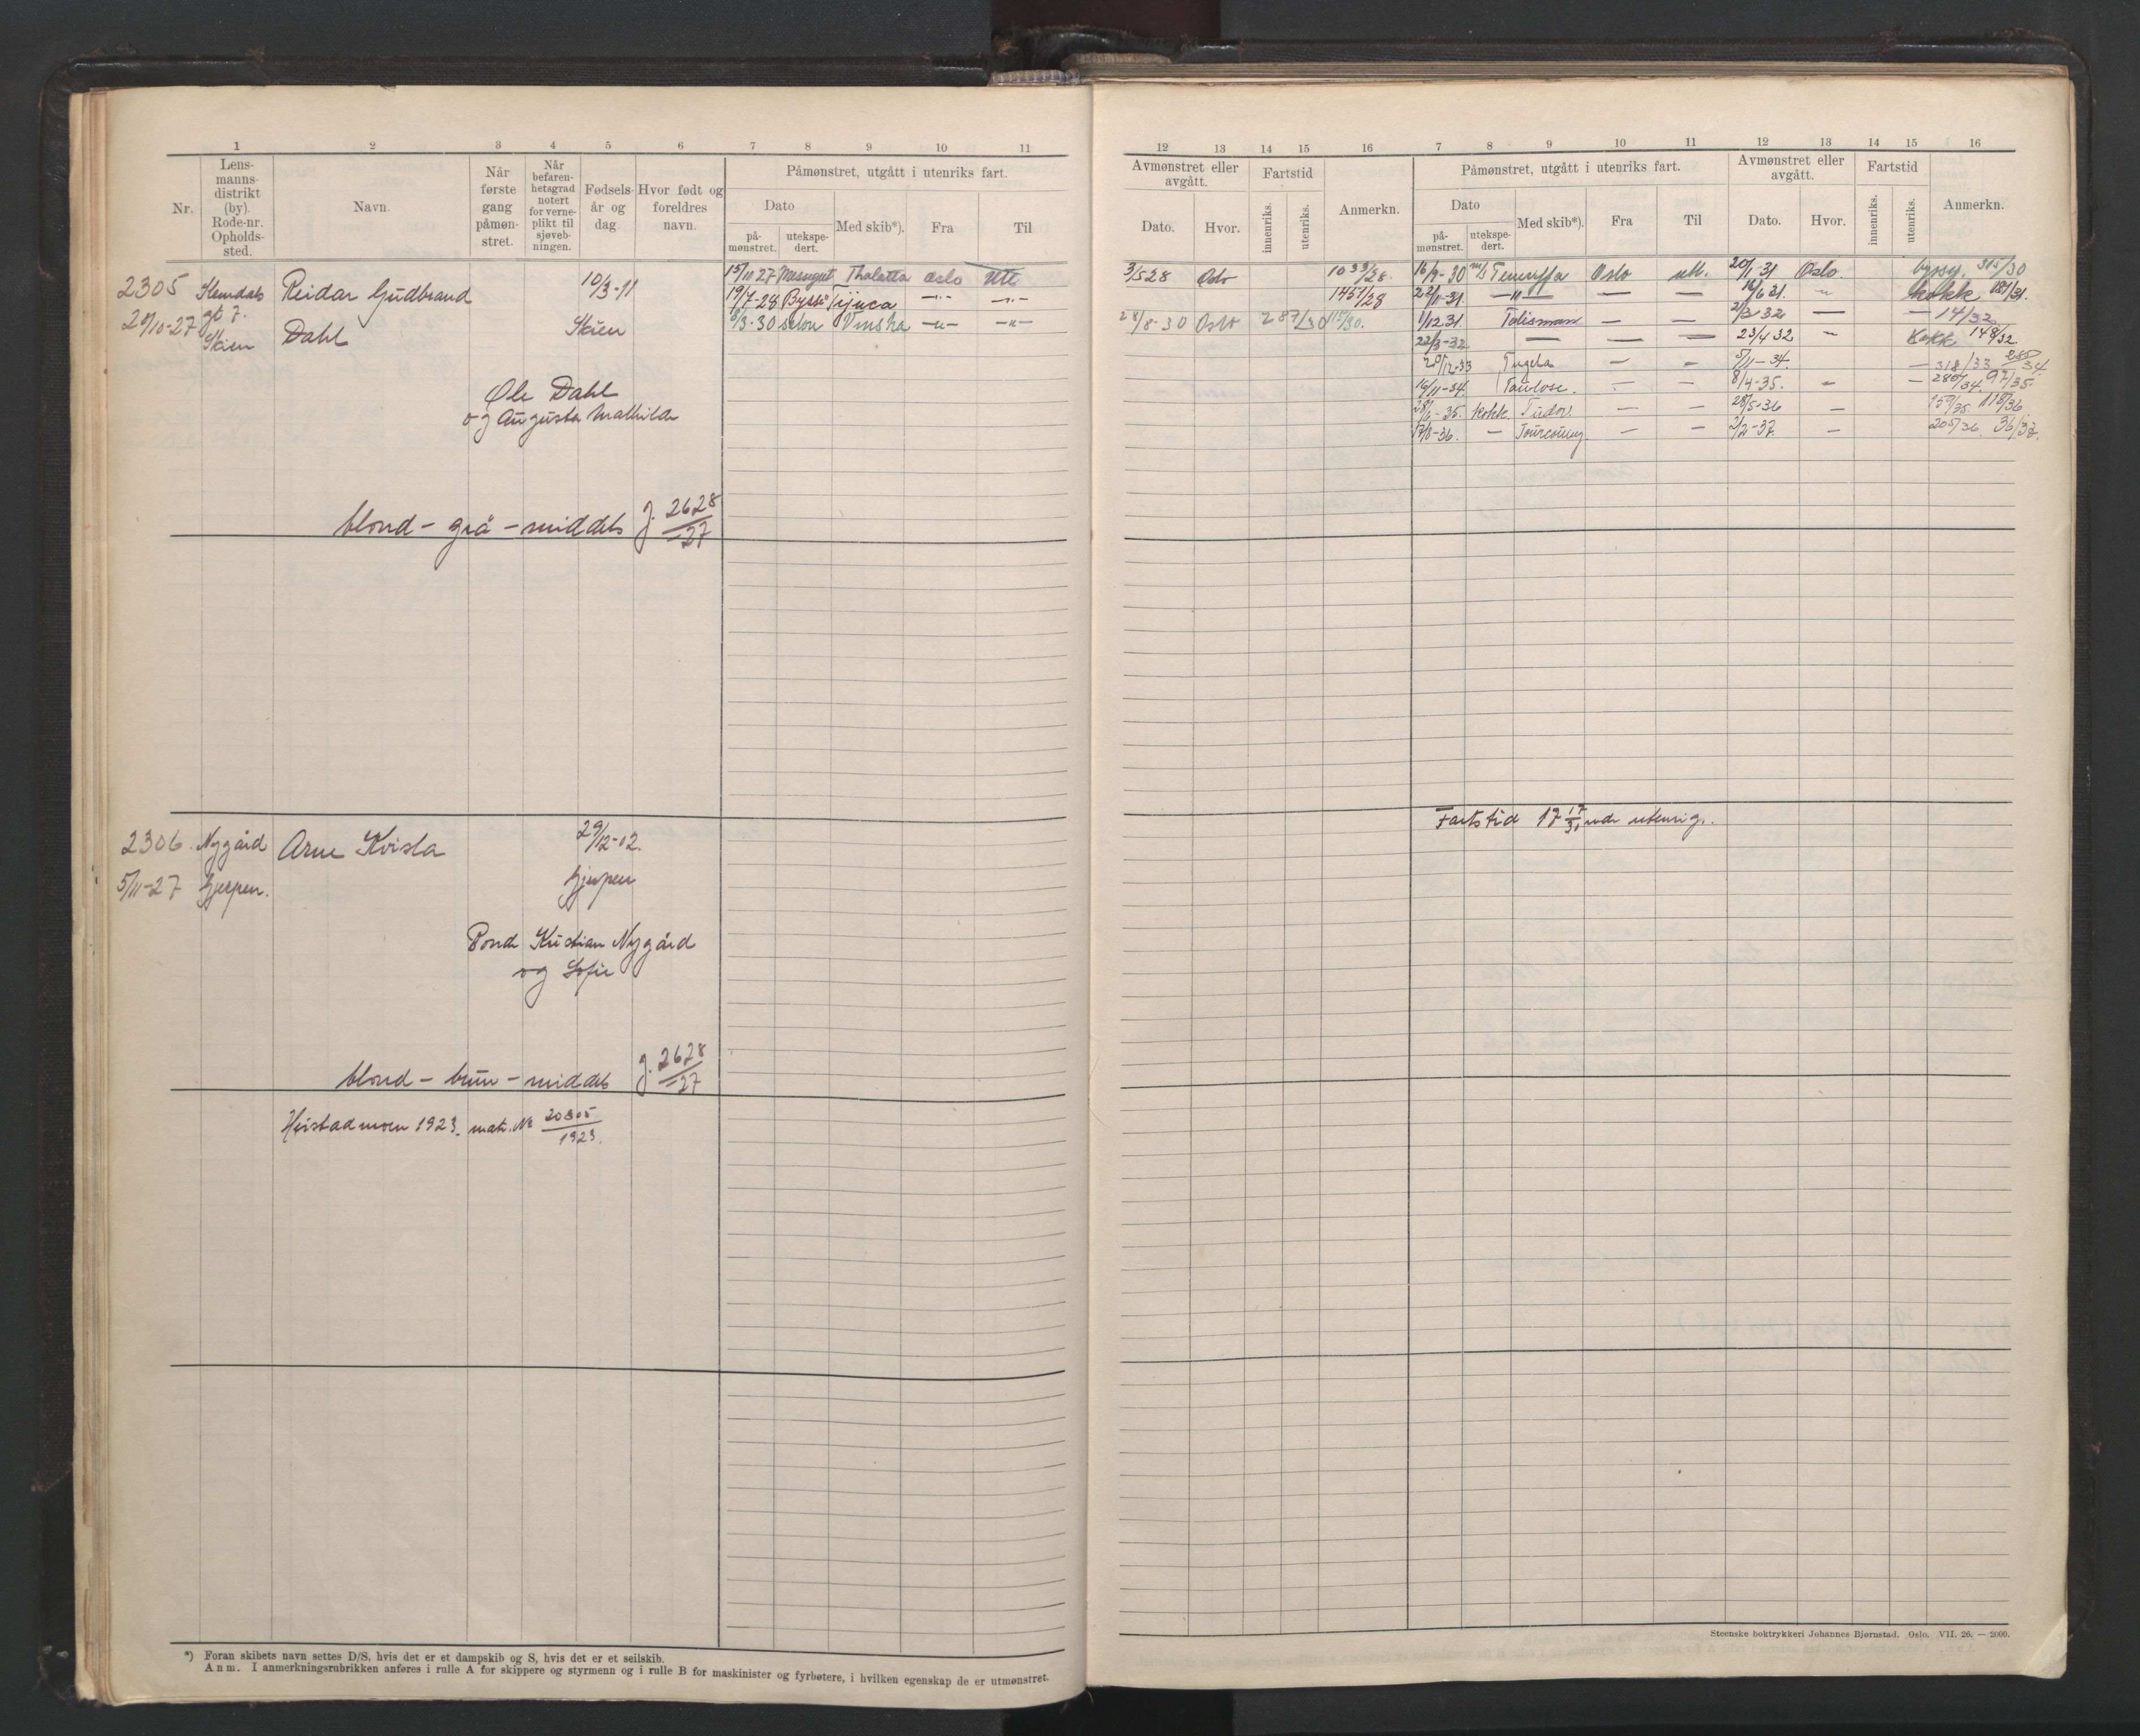 1 2 3 4 5 6 7 8 9 10 11
Nr.
Lens-
manns-
distrikt
(by).
Rode-nr.
Opholds-
sted.
Navn.
Når
første
gang
påmøn-
stret.
Når
befaren-
hetsgrad
notert
for verne-
plikt til
sjøveb-
ningen.
Fødsels-
år og
dag
Hvor født og
foreldres
navn.
Påmønstret, utgått i utenriks fart.
Dato
på-
mønstret.
utekspe-
dert.
Med skib*).
Fra
Til
2305 Reidar Gudbrand 10/3-11 15/11 27 Thalatta Oslo Ute
gt 7. 19/7-28 Tijuca —"— —"—
28/10-27 Skien Dahl Skien 8/3-30 —"— —"—
Ole Dahl
og Augusta Mathilde
blond - grå - middels J. 2628/-27
2306 Nygård Arne Kvisla 29/12-02.
5/11-27 Gjerpen. Gjerpen
Kristian Nygård
og Sofie
blond - brun - middels J. 2628/-27
Heistadmoen 1923. matr. № 20305/1923.
*) Foran skibets navn settes D/S, hvis det er et dampskib og S, hvis det er et seilskib.
Anm. I anmerkningsrubrikken anføres i rulle A for skippere og styrmenn og i rulle B for maskinister og fyrbøtere, i hvilken egenskap de er utmønstret.
12 13 14 15 16 7 8 9 10 11 12 13 14 15 16
Avmønstret eller
avgått.
Dato.
Hvor.
Fartstid
innenriks.
utenriks.
Anmerkn.
Påmønstret, utgått i utenriks fart.
Dato
på-
mønstret.
utekspe-
dert.
Med skib*).
Fra
Til
Avmønstret eller
avgått.
Dato.
Hvor.
Fartstid
innenriks.
utenriks.
Anmerkn.
3/5 28 Oslo 1033/28. 16/9-30 m/s Teneriffa Oslo utl. 20/1-31 Oslo. byssg. 315/30
1451/28 22/1-31 —"— — — 16/6 31. " kokk 181/31.
28/8-30 Oslo 287/30 115/30. 1/12 31. Talisman — — 2/3-32 — — 14/32
22/3-32 — — — 23/4 32 — Kokk 148/32.
20/12-33 Tugela — — 5/11-34. — 318/33
16/11-34. Toulouse. — — 8/4-35. — — 280/34 97/35.
28/6-35. kokk Tudor. — — 28/5-36 — 159/35. 118/36.
17/8-36. — Tourcoing. — — 2/2-37. — 205/36 36/37.
Fartstid 17 17/31 mdr utenrigs.
Steenske boktrykkeri Johannes Bjørnstad. Oslo. VII. 26. — 2000.